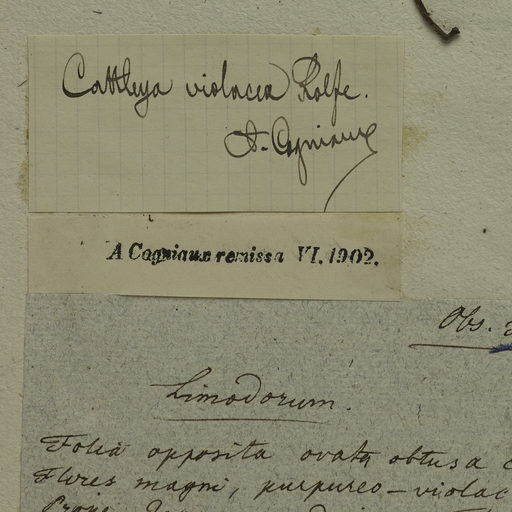 Cattleya violacea Rolfe.
A. Cogniaux
A Cogniaux remissa VI. 1902.
Obs.
Limodorum.
Folia opposita ovata obtusa
Flores magni, purpureo-violac